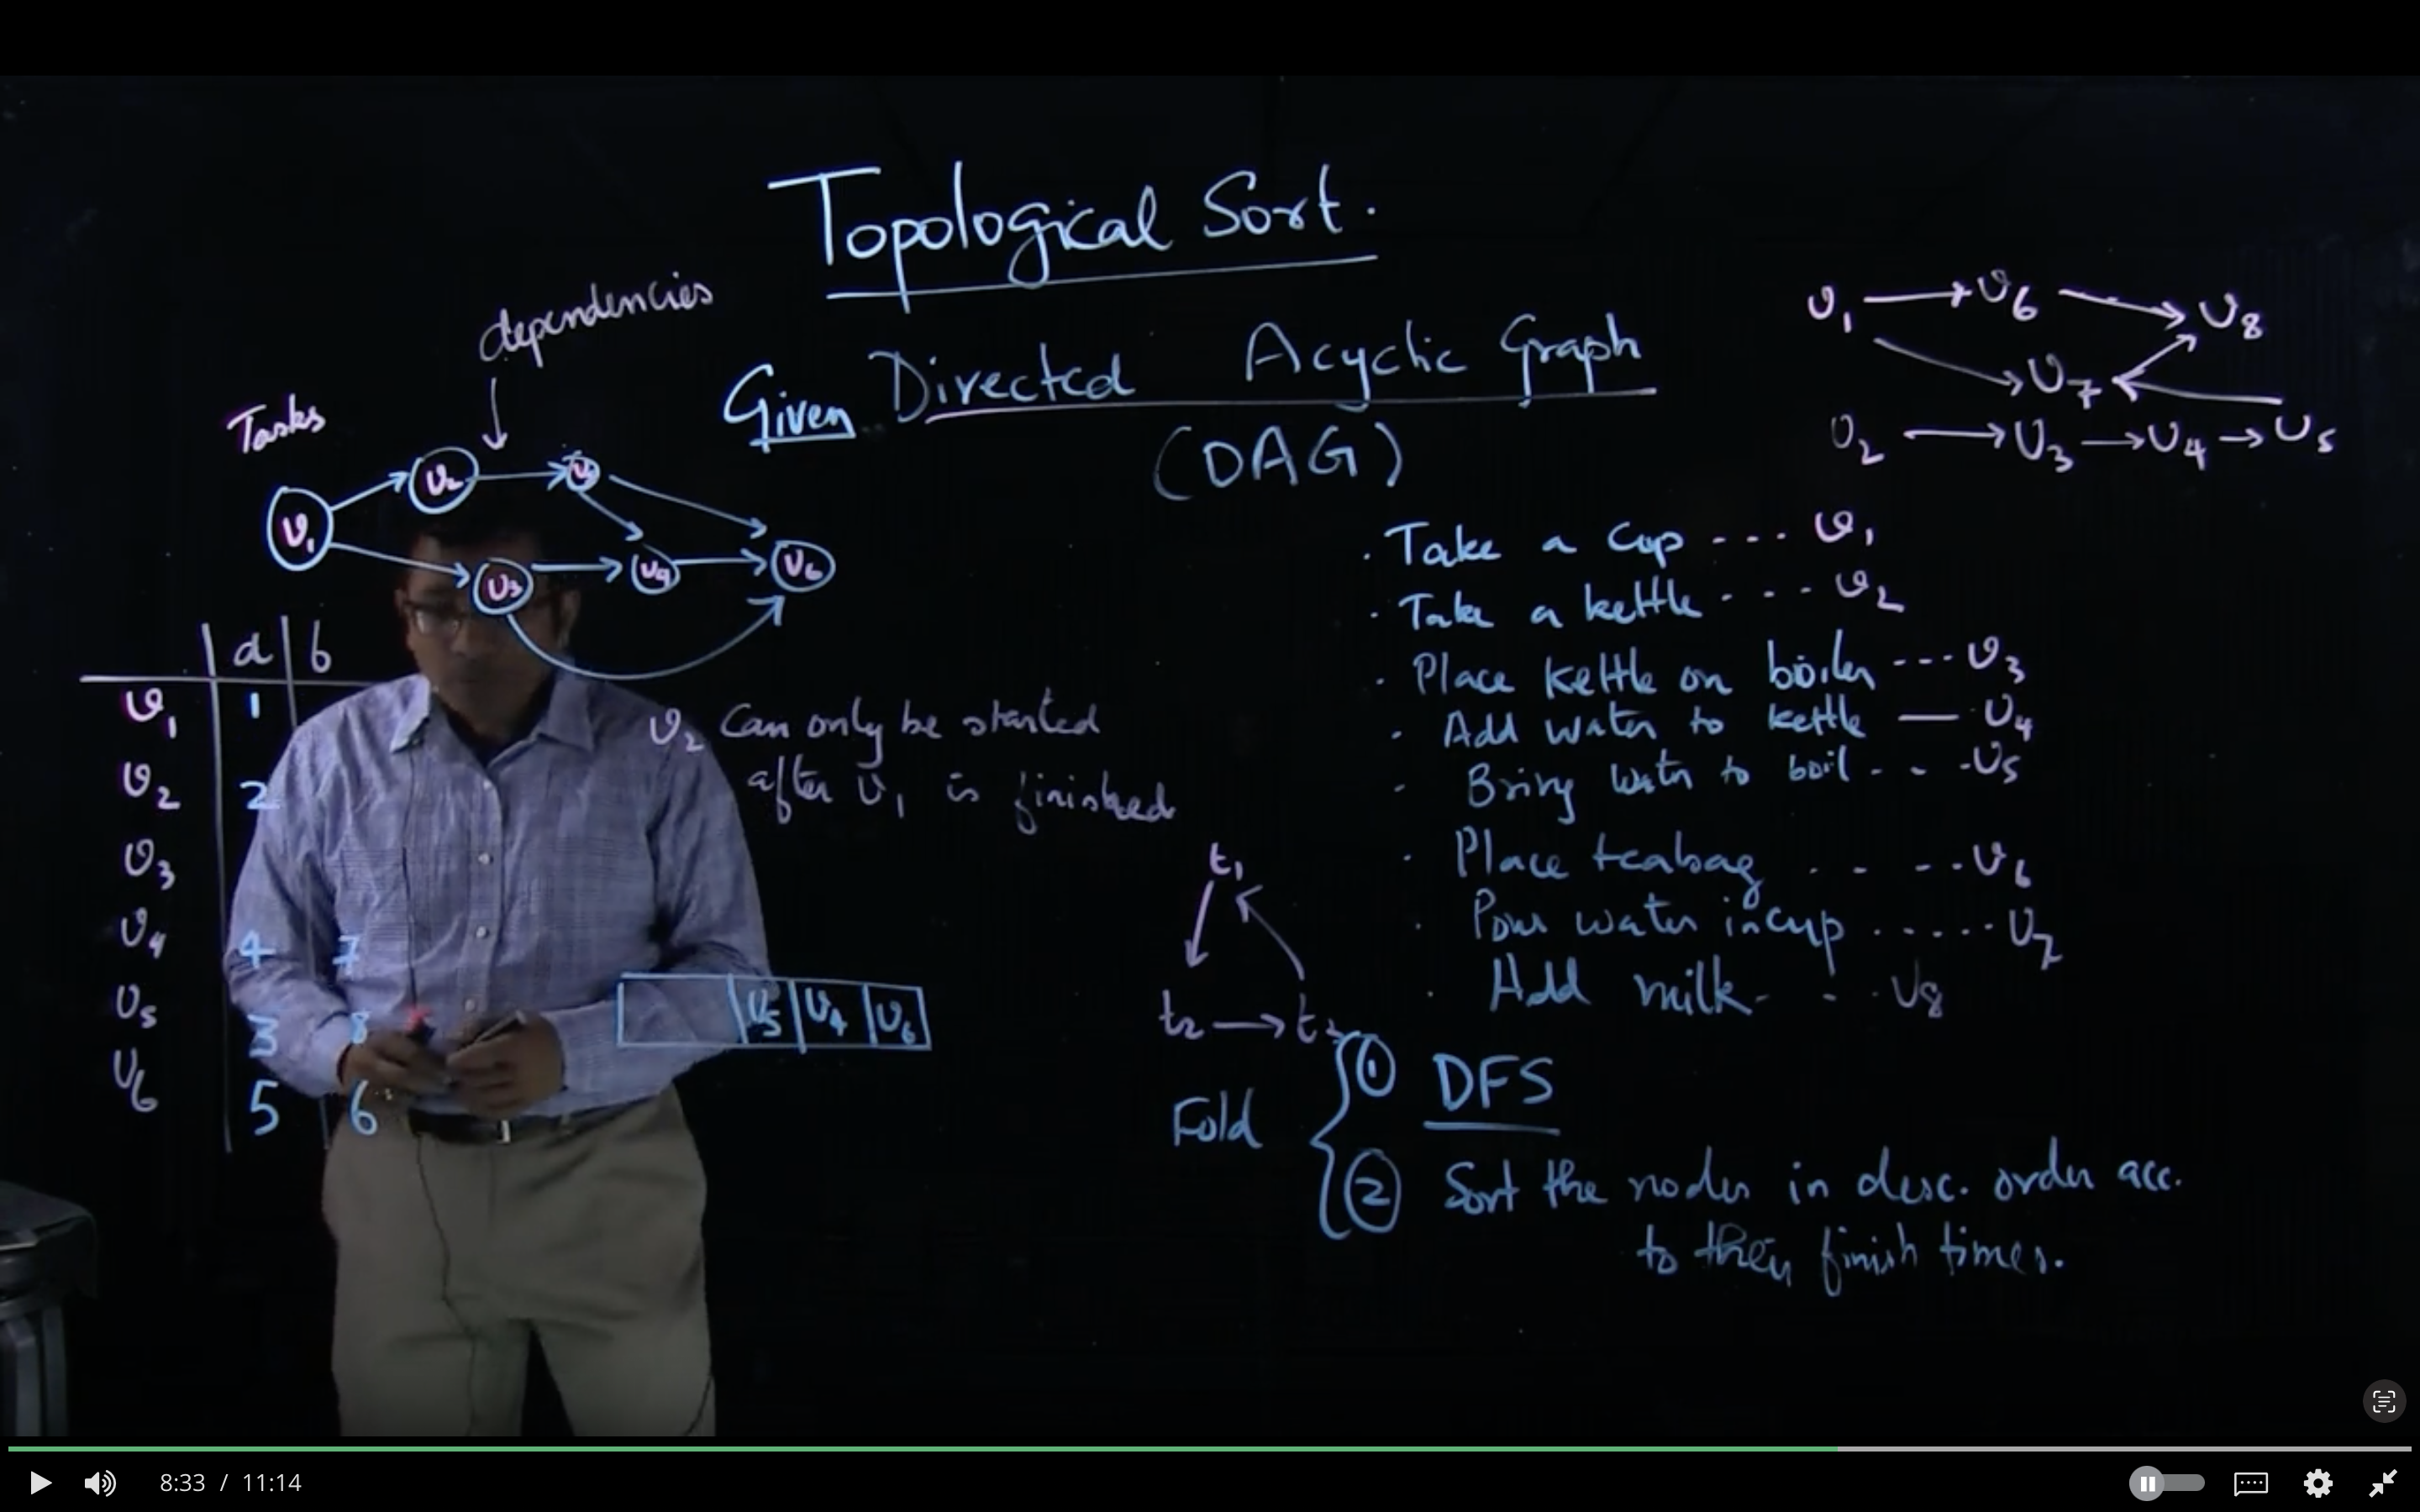 Topological Sort.
Given Directed Acyclic Graph
(DAG)
dependencies
Tasks
v1 v2 v5 v3 v4 v6
v1 → v6 → v8
v7
v2 → v3 → v4 → v5
d | b
v1 1
v2 2
v3
v4 4 7
v5 3 8
v6 5 6
v2 Can only be started
after v1 is finished
v5 | v4 | v6
t1
t2 → t3
. Take a cup --- v1
. Take a kettle - - - - v2
. Place kettle on boiler --- v3
. Add water to kettle — v4
. Bring water to boil - - - v5
. Place teabag - - - - v6
. Pour water in cup ...... v7
. Add milk - - - v8
Fold
① DFS
② Sort the nodes in desc. order acc.
to their finish times.
8:33 / 11:14